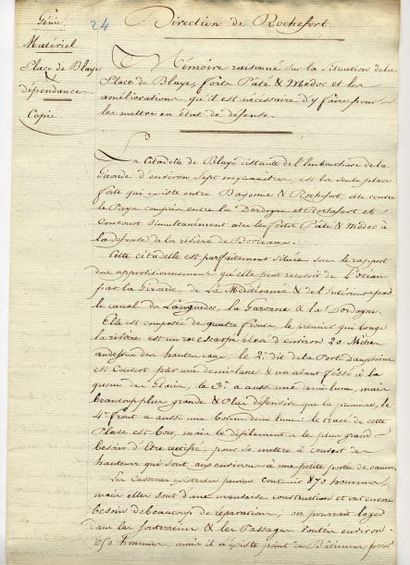 Génie
24
Direction de Rochefort
Matériel
Place de Blaye
dépendances
Copie
Mémoire raisonné sur la situation de la
Place de Blaye, forts Pâté & Médoc et les
améliorations qu'il est nécessaire d'y faire pour
les mettre en état de défense.
La Citadelle de Blaye distante de l'embouchure de la
Gironde d'environ Sept myriamètres est la seule place
forte qui existe entre Bayonne & Rochefort elle
Pays compris entre la Dordogne et Rochefort et
concourt simultanément avec les forts Pâté & Médoc à
la défense de la rivière de Bordeaux.
Cette citadelle est parfaitement située sous le rapport
des approvisionnements qu'elle peut recevoir de l'océan
par la Gironde, de la Méditerranée & de l'intérieur par
le canal du Languedoc, la Garonne & la Dordogne.
Elle est composée de quatre fronts, le premier qui longe
la rivière est un roc escarpé élevé d'environ 20 Mètres
au dessus des hautes eaux, le 2e dit de la Porte dauphine
est couvert par une demi-lune & un avant fossé à la
queue du Glacis, le 3e a aussi une demi lune, mais
beaucoup plus grande & plus défensive que la première, le
4e front a aussi une bonne demi lune: le tracé de cette
Place est bon, mais le défilement a le plus grand
besoin d'être rectifié, pour se mettre à couvert des
hauteurs qui sont aux environs à une petite portée de canon.
Les Casernes peuvent contenir 870 hommes
mais elles sont d'une mauvaise construction et ont encore
besoin de beaucoup de réparations, on pourrait loger
dans les souterrains & les Passages voûtés environ
650 hommes, mais il n'existe point de Bâtiment pour